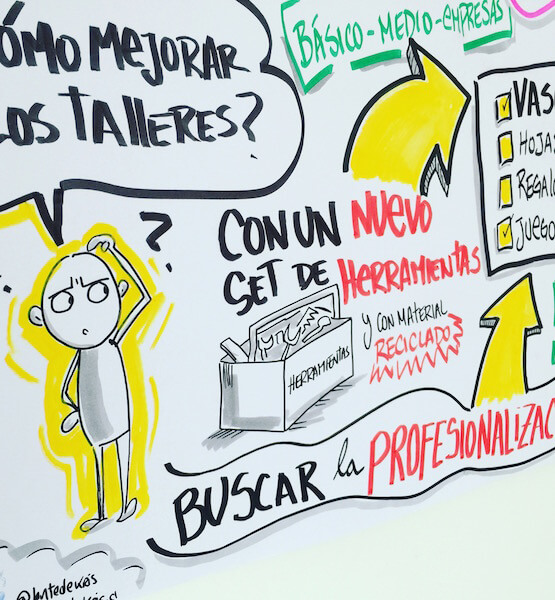 ÓMO MEJORAR
LOS TALLERES?
BÁSICO - MEDIO - EMPRESAS
VAS
HOJAS
REGALO
JUEGO
?
CON UN NUEVO
SET DE HERRAMIENTAS
y CON MATERIAL
RECICLADO
HERRAMIENTAS
BUSCAR la PROFESIONALIZAC